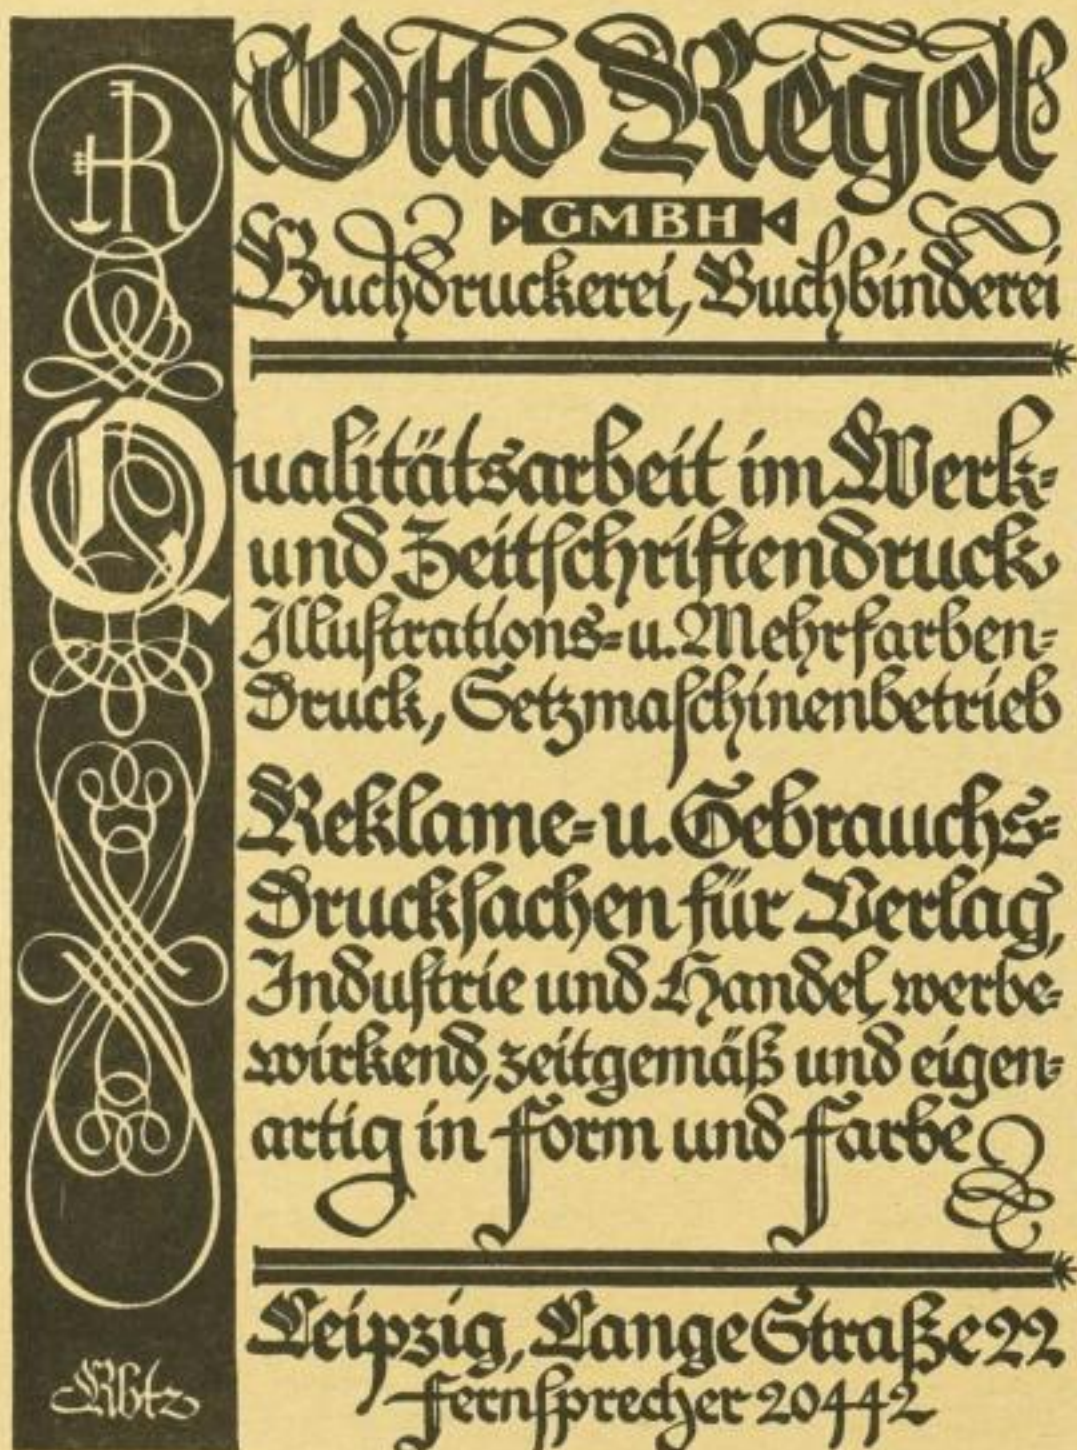 Otto Regel
GMBH
Buchdruckerei, Buchbinderei
Qualitätsarbeit im Werk-
und Zeitschriftendruck
Illustrations- u. Mehrfarben-
Druck, Setzmaschinenbetrieb
Reklame- u. Gebrauchs-
Drucksachen für Verlag,
Industrie und Handel, werbe-
wirkend, zeitgemäß und eigen-
artig in Form und Farbe
Leipzig, Lange Straße 22
Fernsprecher 20442